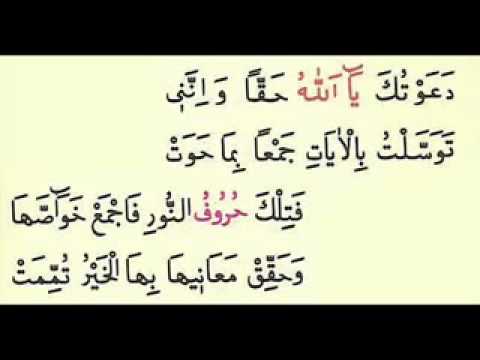 دَعَوْتُكَ يَا اَللّٰهُ حَقًا وَ اِنَّنٖى
تَوَسَّلْتُ بِالْاٰيَاتِ جَمْعًا بِمَا حَوَتْ
فَتِلْكَ حُرُوفُ النُّورِ فَاجْمَعْ خَوَاصَّهَا
وَحَقِّقْ مَعَانٖيهَا بِهَا الْخَيْرُ تُمِّمَتْ